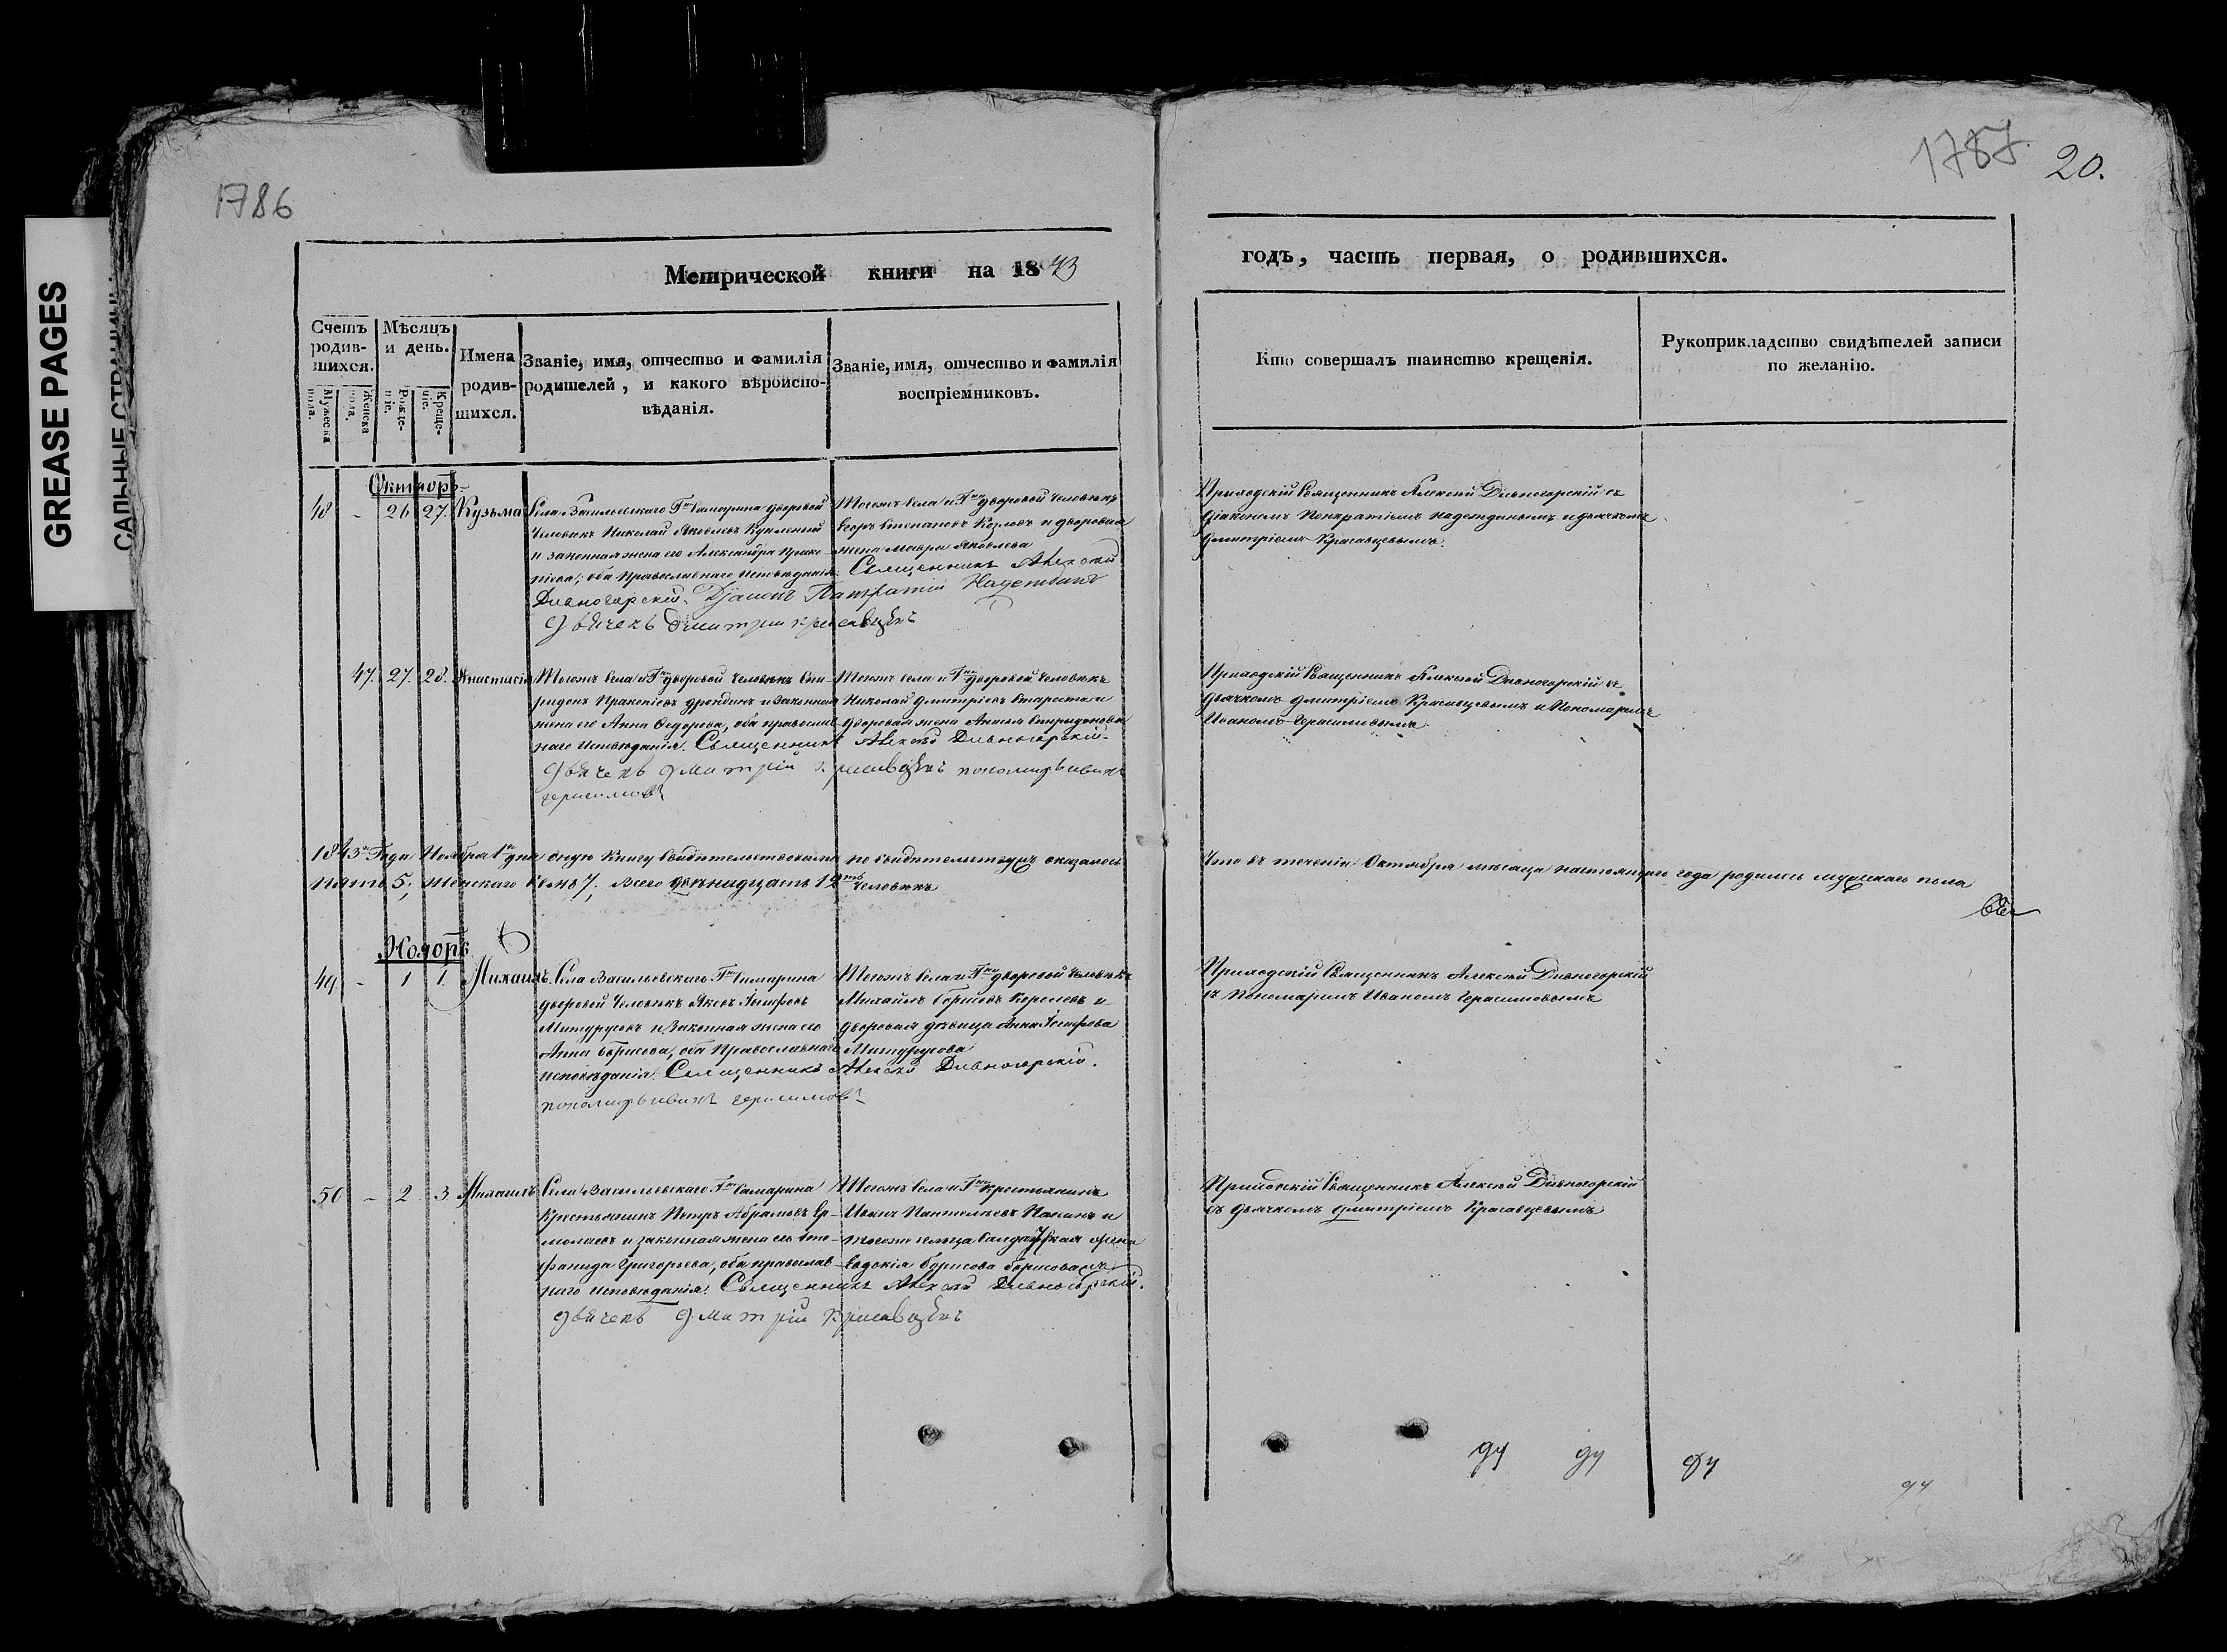 1786
1787
20.
GREASE PAGES
САЛЬНЫЕ СТРАНИЦЫ
Метрической книги на 1843
годъ, часть первая, о родившихся.
Счетъ родив-шихся.
Мужеска пола.
Женска пола.
Мѣсяцъ и день.
Рожде-ніе.
Креще-ніе.
Имена родив-шихся.
Званіе, имя, отчество и фамилія
родителей, и какого вѣроиспо-
вѣданія.
Званіе, имя, отчество и фамилія
воспріемниковъ.
Кто совершалъ таинство крещенія.
Рукоприкладство свидѣтелей записи
по желанію.
Октябрь
48 - 26 27. Кузьма
Села Васильевскаго Гна Самарина дворовой
человѣкъ Николай Яковлевъ
и законная жена его Александра Проко-
піева; оба православнаго исповѣданія. Священникъ Алексѣй
Дивногорскій. Діаконъ Панкратій Надеждинъ
Дьячекъ Дмитрій Красавцевъ
Тогожъ села и Гна дворовой человѣкъ
Егоръ Степановъ Козловъ и дворовая
жена Мавра Яковлева
Приходскій Священникъ Алексѣй Дивногорскій съ
Діакономъ Панкратіемъ Надеждинымъ и дьячкомъ
Дмитріемъ Красавцевымъ.
47. 27. 28. Анастасія
Тогожъ села и Гна дворовой человѣкъ Спи-
ридонъ Прокопіевъ и законная
жена его Анна Федорова, оба православ-
наго исповѣданія. Священникъ Алексѣй Дивногорскій.
Дьячекъ Дмитрій Красавцевъ пономарь Иванъ
Герасимовъ
Тогожъ села и Гна дворовой человѣкъ
Николай Дмитріевъ Староста и
дворовая жена Спиридонова
Приходскій Священникъ Алексѣй Дивногорскій съ
дьячкомъ Дмитріемъ Красавцевымъ и Пономаремъ
Иваномъ Герасимовымъ
1843го Года Ноября 1го дня сную Книгу свидѣтельствовали по свидѣтельству оказалось
Что въ теченіи Октября мѣсяца настоящаго года родилось мужскаго пола
пять 5; женскаго семь 7; всего двѣнадцать 12ть человѣкъ
Ноябрь
49 - 1 1. Михаилъ.
Села Васильевскаго Гна Самарина
дворовой человѣкъ Яковъ
и законная жена его
Анна Борисова, оба Православнаго
исповѣданія. Священникъ Алексѣй Дивногорскій.
пономарь Иванъ Герасимовъ
Тогожъ села и Гна дворовой человѣкъ
Михаилъ Борисовъ Королевъ и
дворовая дѣвица Анна
Приходскій Священникъ Алексѣй Дивногорскій
съ Пономаремъ Иваномъ Герасимовымъ
50 - 2 3 Михаилъ
Села Васильевскаго Гна Самарина
Крестьянинъ Петръ Абрамовъ Ер-
молаевъ и законная жена его Сте-
фанида Григорьева, оба православ-
наго исповѣданія. Священникъ Алексѣй Дивногорскій.
Дьячекъ Дмитрій Красавцевъ
Тогожъ села и Гна крестьянинъ
Иванъ Пантелѣевъ и
тогожъ сельца Солдатская жена
Евдокія Борисова
Приходскій Священникъ Алексѣй Дивногорскій
съ дьячкомъ Дмитріемъ Красавцевымъ